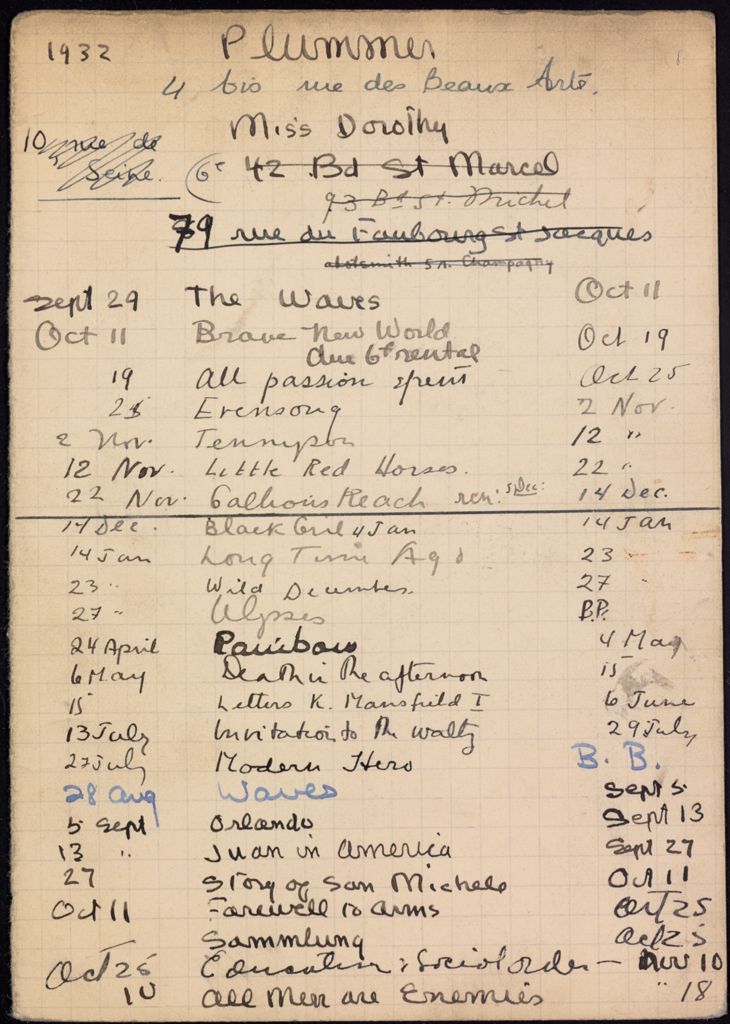 1932 Plummer
4 bis rue des Beaux Arts.
Miss Dorothy
10 rue de
Seine.
(6e 42 Bd St Marcel
93 Bd St. Michel
79 rue du Faubourg St Jacques
Champagny
Sept 29 The Waves Oct 11
Oct 11 Brave New World Oct 19
due 6f rental
19 All passion spent Oct 25
25 Evensong 2 Nov.
2 Nov. Tennyson 12 "
12 Nov. Little Red Horses. 22 "
22 Nov. Calhouns Reach ren: 5 Dec: 14 Dec.
14 Dec. Black Girl 4 Jan 14 Jan
14 Jan Long Time Ago 23
23 " Wild Decembers 27 "
27 " Ulysses B.P.
24 April Rainbow 4 May
6 May Death in the afternoon 15
15 Letters K. Mansfield I 6 June
13 July Invitation to the waltz 29 July
27 July Modern Hero B. B.
28 Aug Waves Sept 5
5 Sept Orlando Sept 13
13 " Juan in America Sept 27
27 Story of San Michele Oct 11
Oct 11 Farewell to arms Oct 25
Sammlung Oct 25
Oct 25 Education & Social order — Nov 10
10 All Men are Enemies " 18